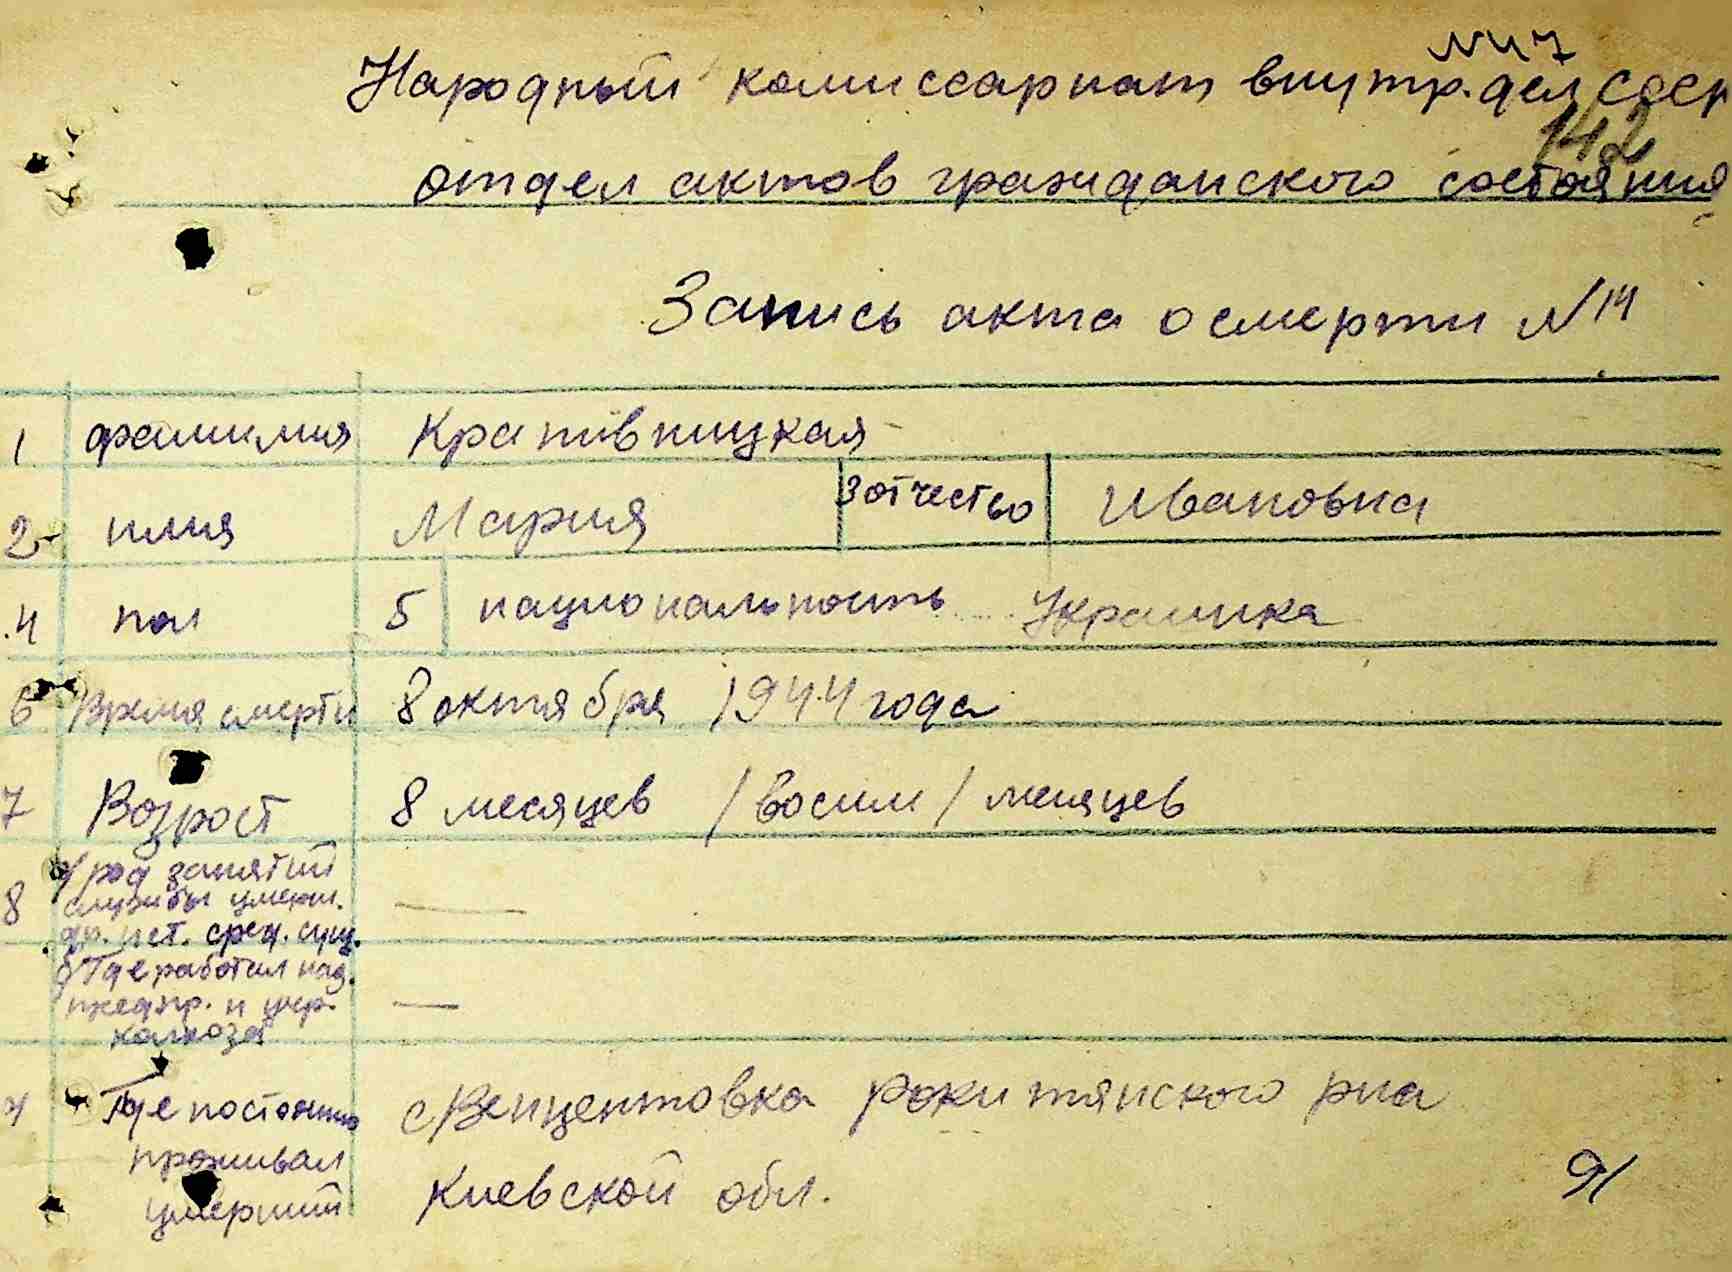 N 47
Народный комиссариат внутр. дел СССР
142
отдел актов гражданского состояния
Запись акта о смерти N 14
1 фамилия Крапівницкая
2 имия Мария 3 отчество Ивановна
4 пол 5 национальность Украинка
6 Время смерти 8 октября 1944 года
7 Возрост 8 месяцев /восим/ месяцев
8 а/ род занятий
службы умерш.
др. ист. сред. сущ. —
б/ Где работал наз.
предпр. и учр.
калхоза —
Где постоянно с Венцентовка Рокитянского рна
проживал
умерший Киевской обл.
91